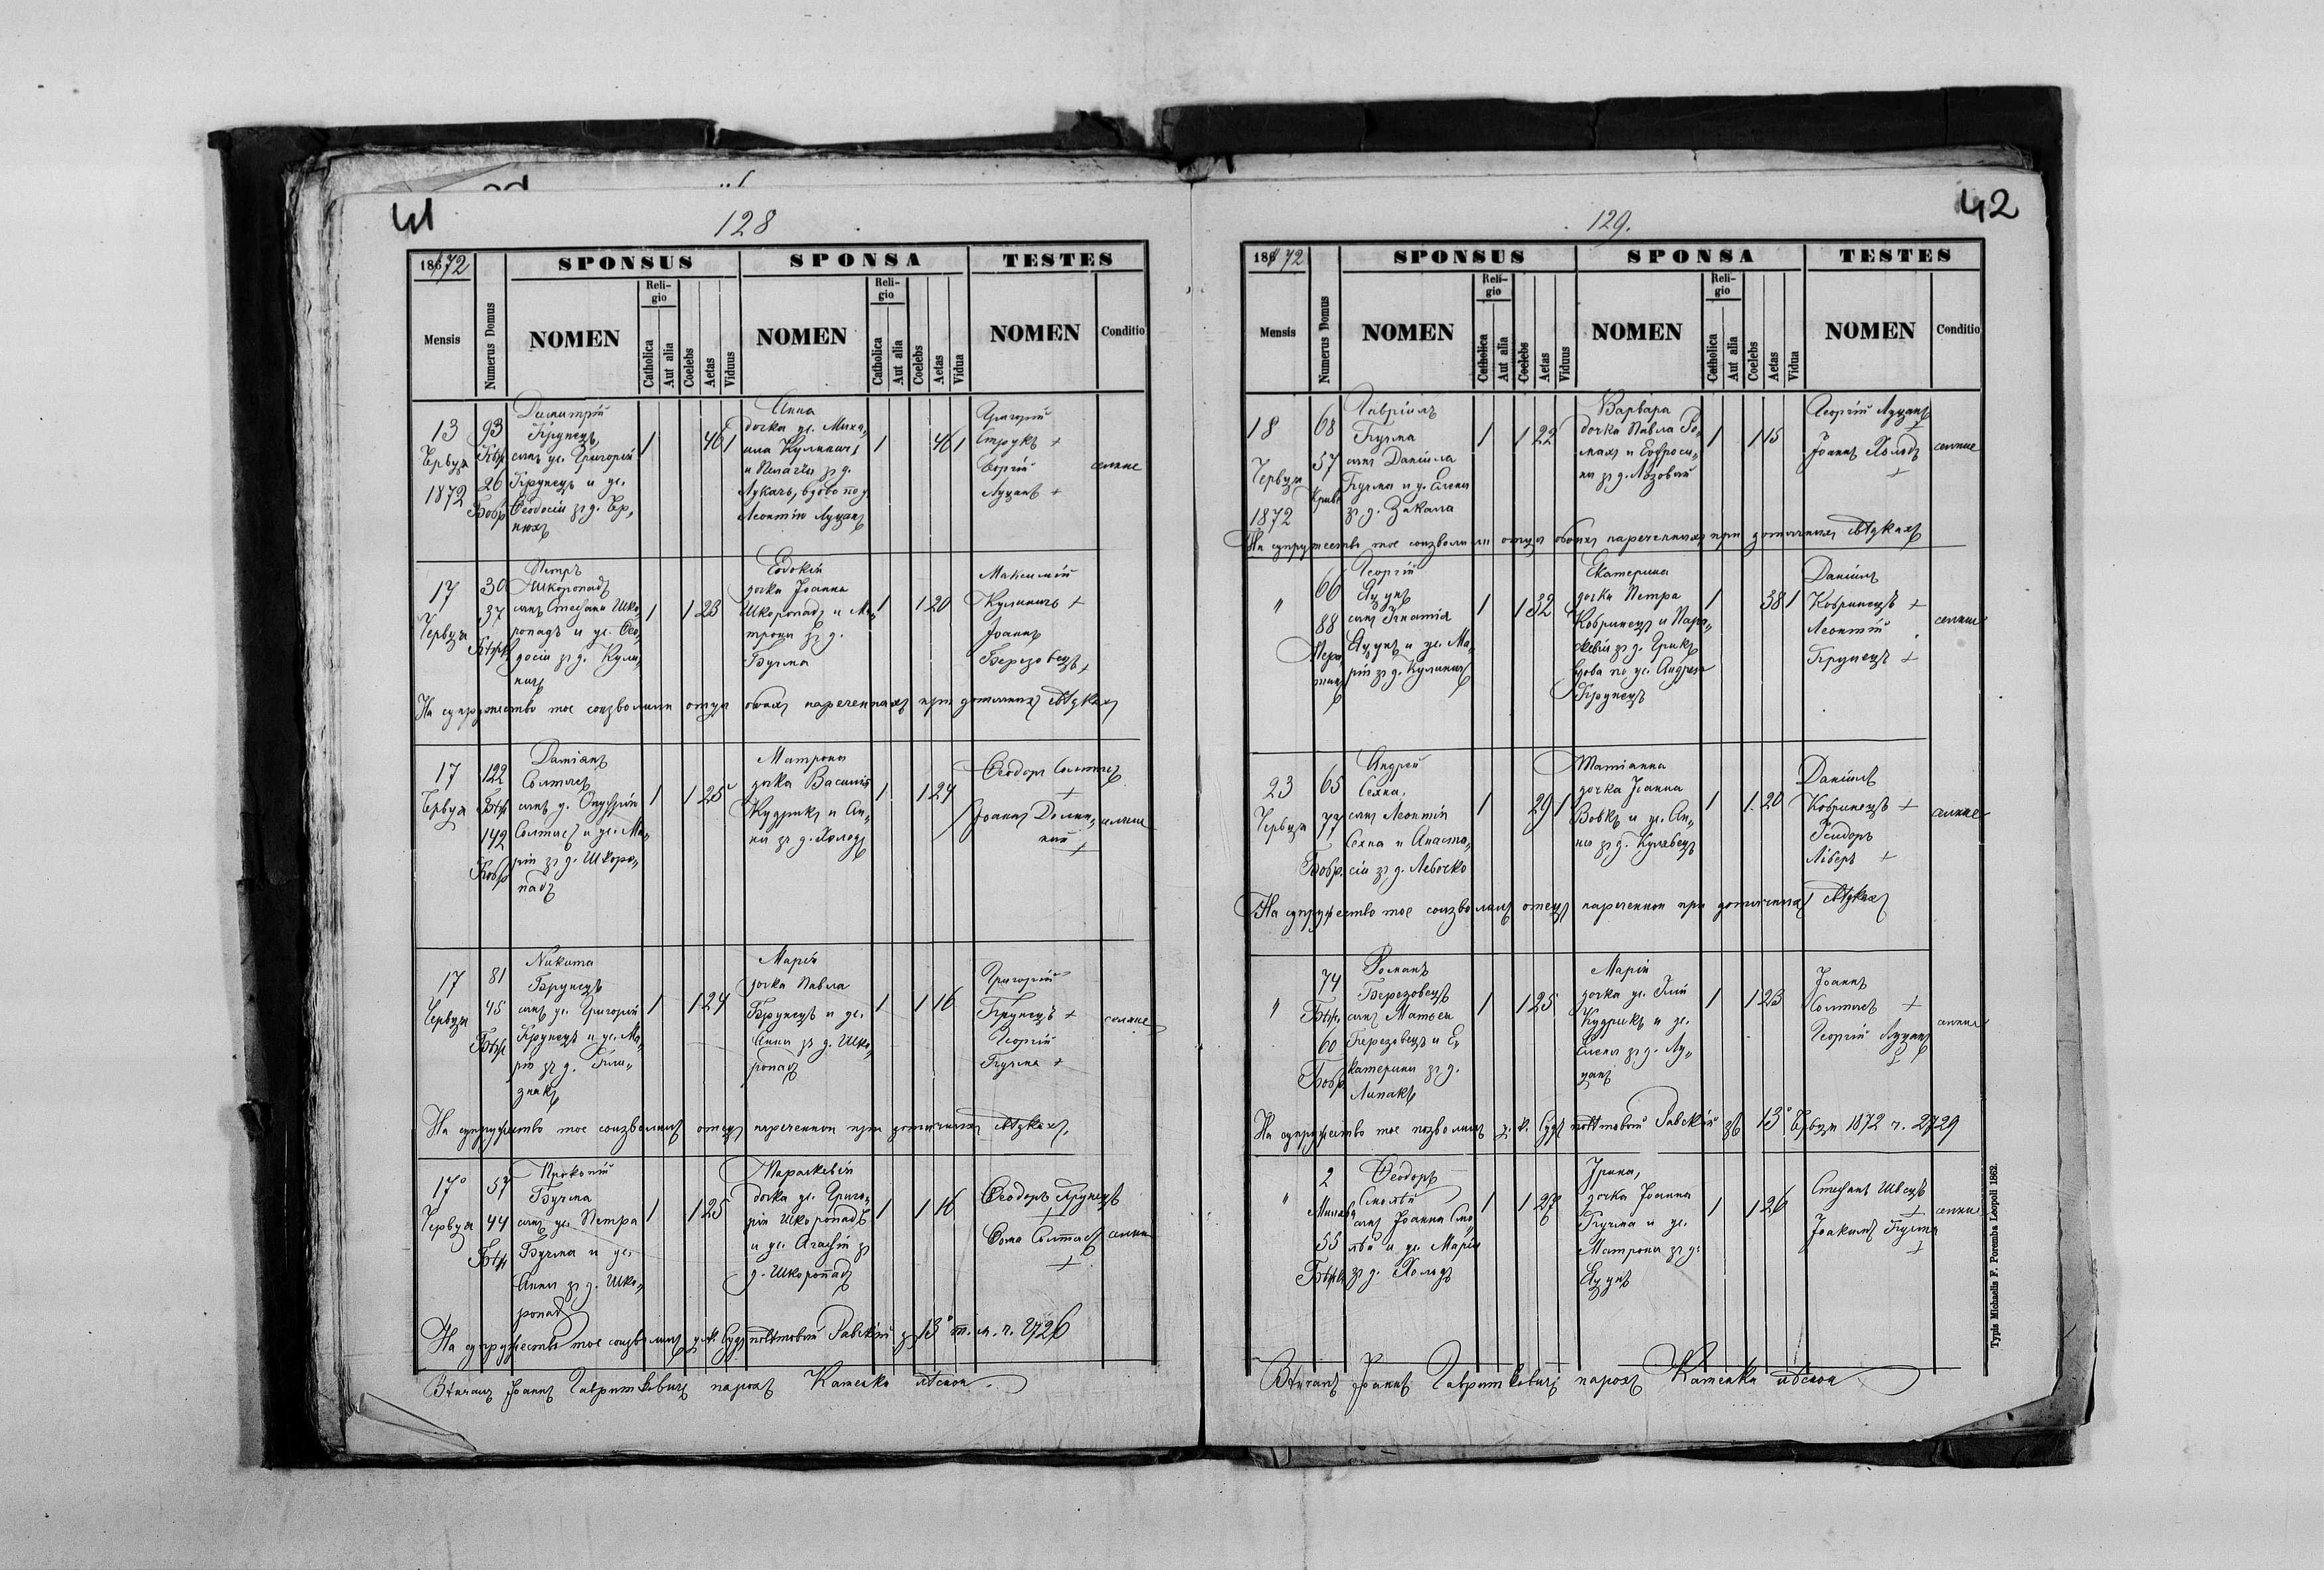 41
128
1872
SPONSUS
SPONSA
TESTES
Mensis
Numerus Domus
NOMEN
Religio
Catholica
Aut alia
Coelebs
Aetas
Viduus
NOMEN
Religio
Catholica
Aut alia
Coelebs
Aetas
Vidua
NOMEN
Conditio
13
Червця
1872
93
26
Бобр
Димитрій
Крупецъ,
сынъ ус. Григорій
Крупецъ и ус.
Ѳеодосіи зъ д.
1
46 1
Анна
дочка ус. Миха„
ила Куликичъ
и Пелагіи зъ д.
Лукачъ, вдова по у.
Леонтію Луцанъ
1
46 1
Григорій
Струкъ +
Георгій
Луцанъ +
селяне
17
Червця
30
37
Петръ
Шкоропадъ
сынъ Стефана Шко„
ропадъ и ус. Ѳео„
досіи зъ д. Кули„
кичъ
1
1 23
Евдокія
дочка Іоанна
Шкоропадъ и Ма„
троны зъ д.
Бучма
1
1 20
Максимій
Куликичъ +
Іоаннъ
Березовецъ +
На супружество тое соизволили отцы обоихъ нареченныхъ при дотычныхъ свѣдкахъ
17
Червця
122
142
Даміанъ
Солтысъ
сынъ у. Онуфрій
Солтысъ и ус. Ма„
ріи зъ д. Шкоро„
падъ
1
1 25
Матрона
дочка Василія
Кудрикъ и Ан„
ны зъ д. Холодъ
1
1 24
Ѳеодоръ Солтысъ
+
Іоаннъ
+
селяне
17
Червця
81
45
Никита
Брунецъ
сынъ ус. Григорій
Крупецъ и ус. Ма„
ріи зъ д.
1
1 24
Марія
дочка Павла
Брунецъ и ус.
Анны зъ д. Шко„
ропадъ
1
1 16
Григорій
Крупецъ +
Георгій
Бучма +
селяне
На супружество тое соизволилъ отецъ нареченнои при дотычныхъ свѣдкахъ.
17
Червця
57
44
Прокопій
Бучма
сынъ ус. Петра
Бучма и ус.
Анны зъ д. Шко„
ропадъ
1
1 25
Параскевія
дочка ус. Григо„
рія Шкоропадъ
и ус. Агафіи зъ
д. Шкоропадъ
1
1 16
Ѳеодоръ Крупецъ
+
Ѳома Солтысъ
+
селяне
На супружество тое соизволилъ ц. к. Судъ повѣтовый Равскій зъ 13 т. м. ч. 2726
Вѣнчалъ Іоаннъ парохъ Каменки лѣснои
42
129.
1872
SPONSUS
SPONSA
TESTES
Mensis
Numerus Domus
NOMEN
Religio
Catholica
Aut alia
Coelebs
Aetas
Viduus
NOMEN
Religio
Catholica
Aut alia
Coelebs
Aetas
Vidua
NOMEN
Conditio
18
Червця
1872
68
57
Гавріилъ
Бучма
сынъ Даніила
Бучма и у. Елены
зъ д. Закала
1
1 22
Варвара
дочка Павла Ро„
махъ и Евфроси„
ны зъ д. Лозовый
1
1 15
Георгій Луцанъ
+
Іоаннъ Холодъ
+
селяне
На супружество тое соизволили отцы обоихъ нареченныхъ при дотычныхъ свѣдкахъ
"
66
88
Георгій
Яцунъ
сынъ Игнатія
Яцунъ и ус. Ма„
ріи зъ д. Куликичъ
1
1 32
Екатерина
дочка Петра
Кобринецъ и Пара„
скевіи зъ д. Грикъ
вдова по ус. Андрею
Крупецъ
1
38 1
Даніилъ
Кобринецъ +
Леонтій
Крупецъ +
селяне
23
Червця
65
77
Бобр.
Андрей
Сехна,
сынъ Леонтія
Сехна и Анаста„
сіи зъ д. Левочко
1
29 1
Татіанна
дочка Іоанна
Вовкъ и ус. Ан„
ны зъ д.
1
1 20
Даніилъ
Кобринецъ +
Ісидоръ
Ліберъ +
селяне
На супружество тое соизволилъ отецъ нареченнои при дотычныхъ свѣдкахъ
"
74
60
Бобр
Романъ
Березовецъ
сынъ Матѳея
Березовецъ и Е„
катерины зъ д.
Липакъ
1
1 25
Марія
дочка ус. Иліи
Кудрикъ и ус.
Елены зъ д. Лу„
цанъ
1
1 23
Іоаннъ
Солтысъ +
Георгій Луцанъ
+
селяне
На супружество тое позволилъ ц. к. Судъ повѣтовый Равскій зъ 13 Червця 1872 ч. 2729
"
2
55
Ѳеодоръ
сынъ Іоанна
и ус. Маріи
зъ д. Холодъ
1
1 27
Ірина,
дочка Іоанна
Бучма и ус.
Матроны зъ д.
Яцунъ
1
1 26
Стефанъ Швецъ
+
Іоакимъ Бучма
+
селяне
Вѣнчалъ Іоаннъ парохъ Каменки лѣснои
Typis Michaelis F. Poremba Leopoli 1862.